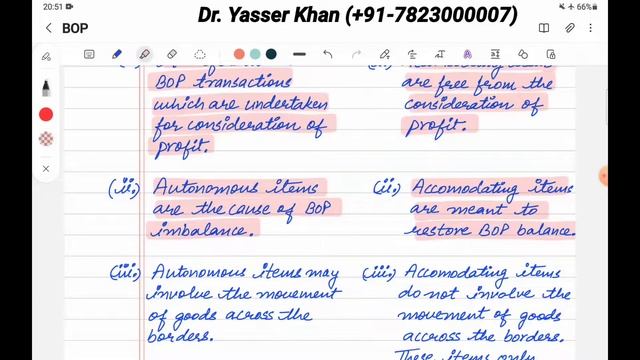 20:51
66%
Dr. Yasser Khan (+91-7823000007)
BOP
BOP transactions
which are undertaken
for consideration of
profit.
are free from the
consideration of
profit.
(ii.) Autonomous items
are the cause of BOP
imbalance.
(ii.) Accomodating items
are meant to
restore BOP balance.
(iii.) Autonomous items may
involve the movement
of goods across the
borders.
(iii.) Accomodating items
do not involve the
movement of goods
accross the borders.
These items only